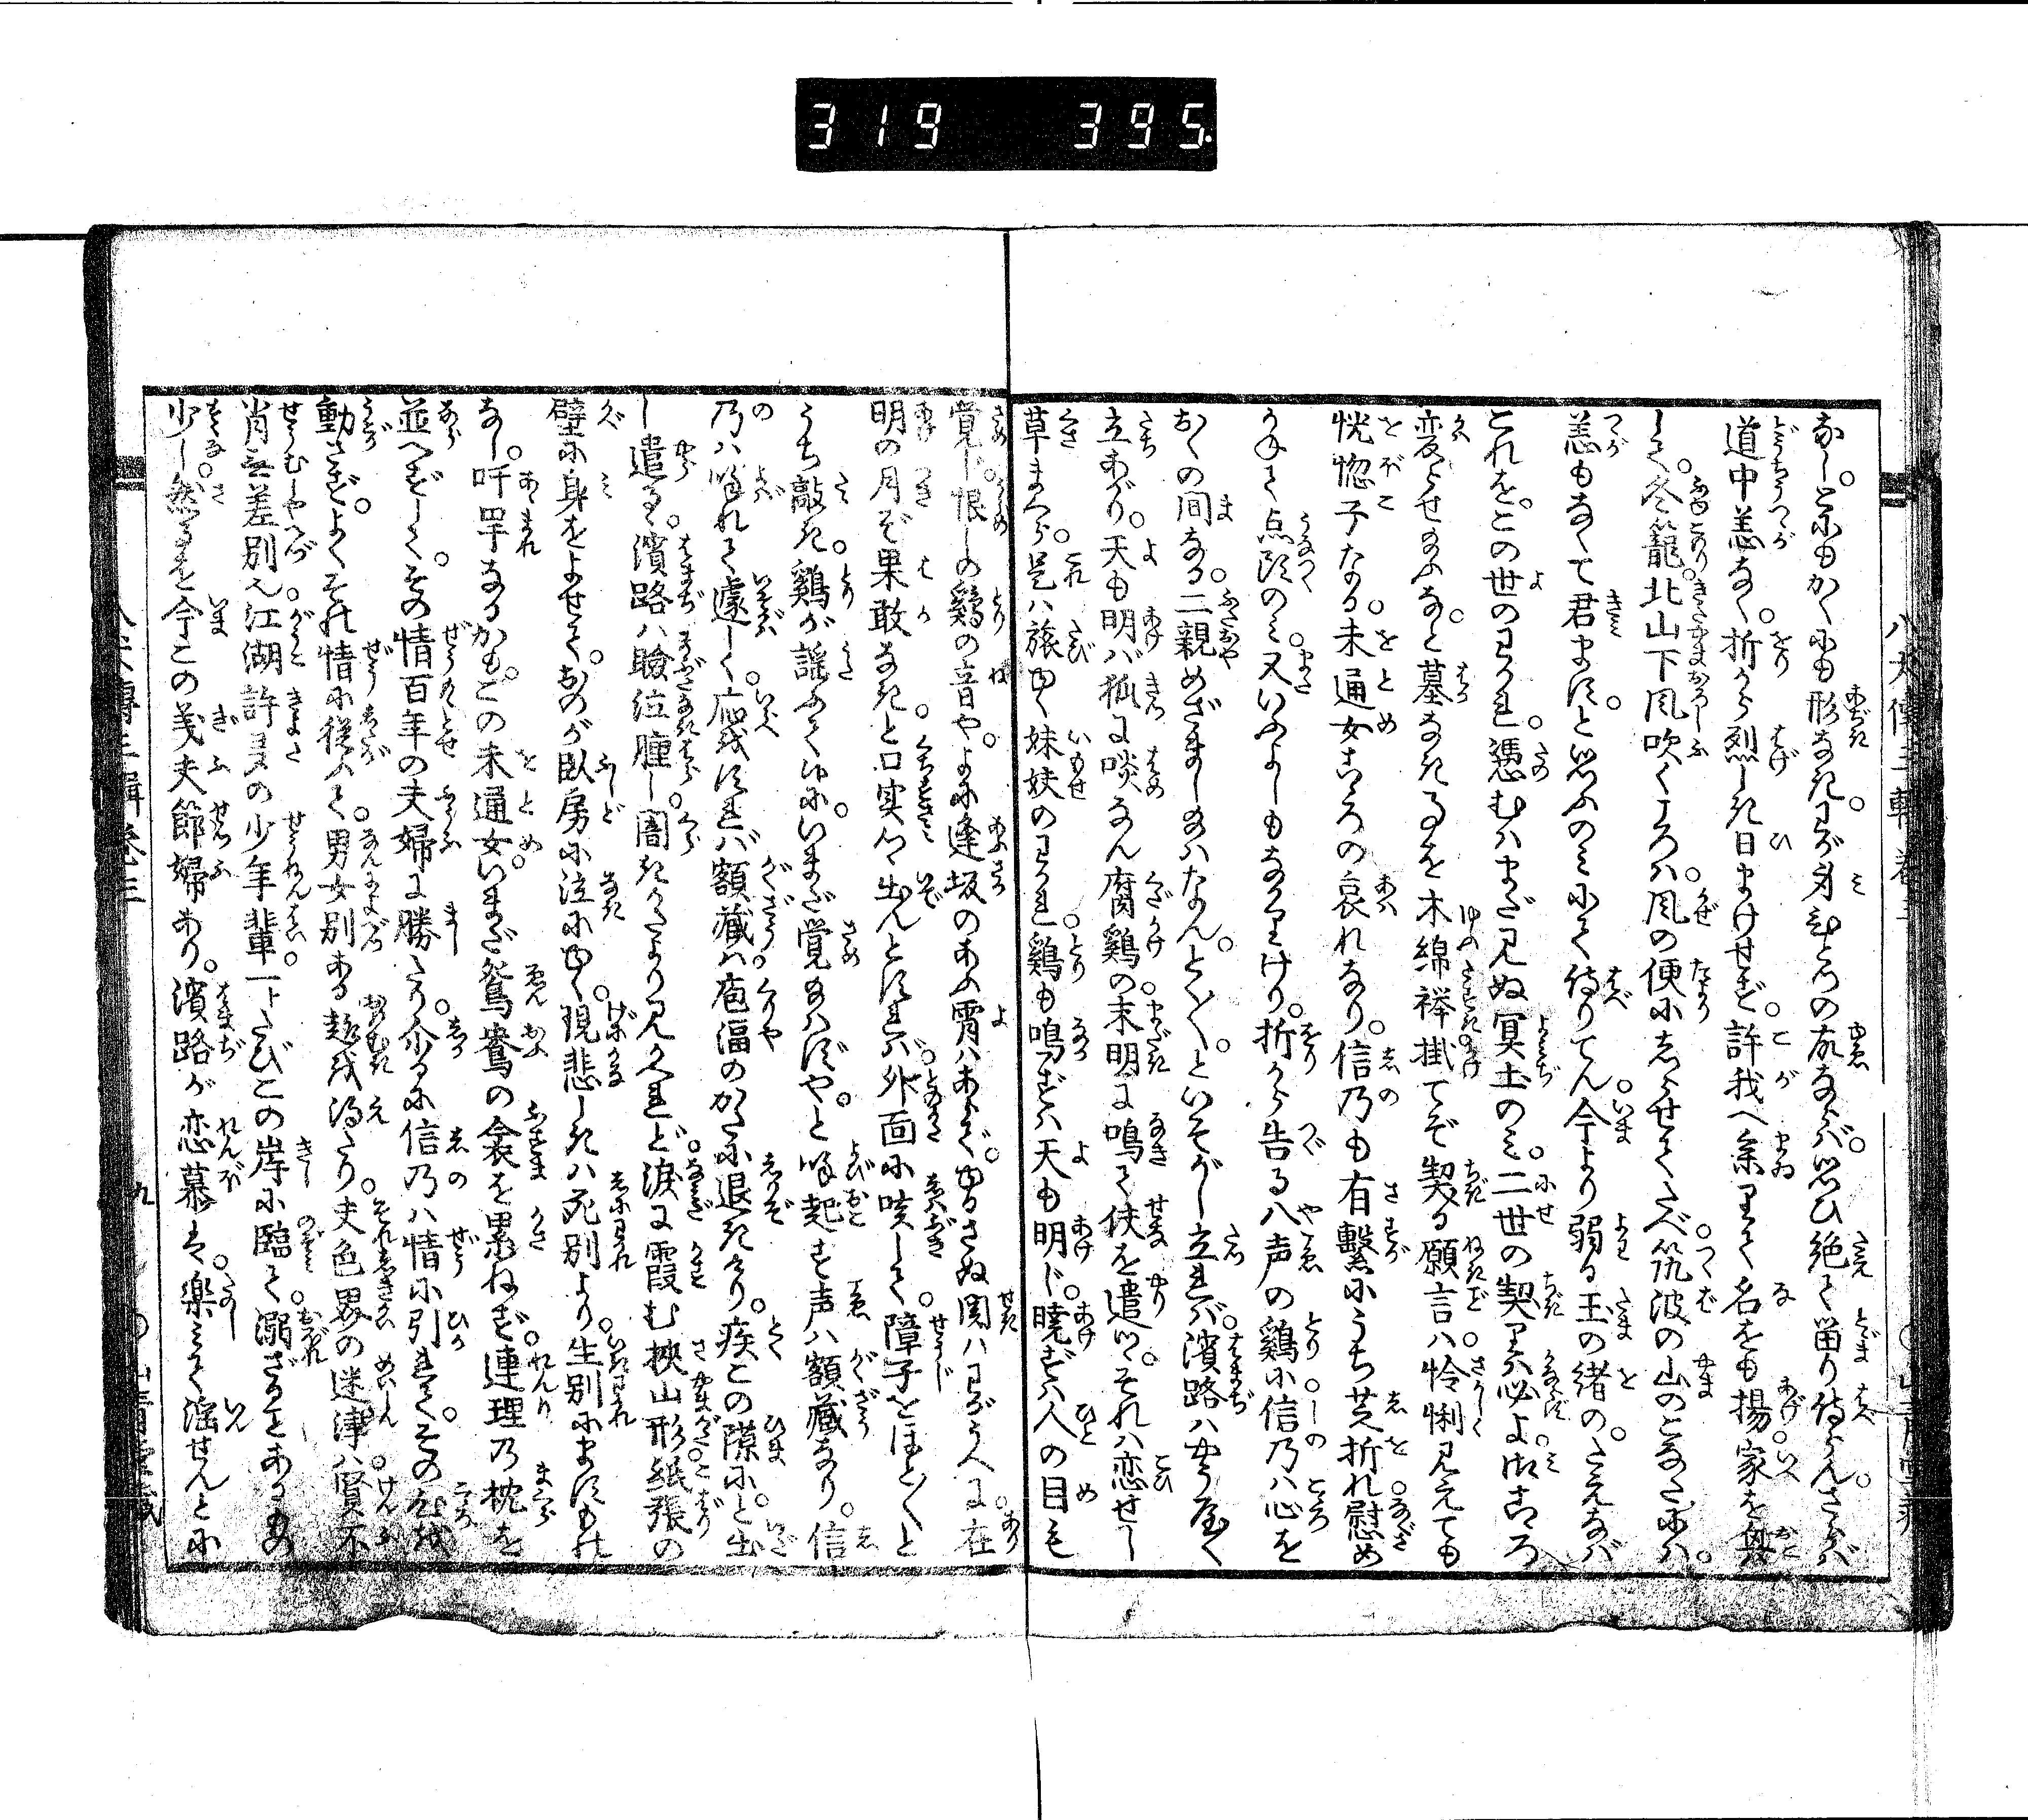 319 395
なし。とにもかくにも形なき。わが身ひとつの故ならば。思ひ絶て留り侍らん。さらば
道中恙なく。折から烈しき日にまけせず。許我へ参りて名をも揚家を興
して。冬籠。北山下風吹くころは。風の便にしらせてたべ。筑波の山のこなたには。
恙もなくて君ますと。思ふのみにて侍りてん。今より弱る玉の緒の。たえなば
これを。この世のわかれ。憑むはまだ見ぬ冥土のみ。二世の契りは必よ。御こゝろ
変らせ給ふなと墓なき事を木綿襷。掛てぞ契る願言は怜悧見えても
恍惚子なる。未通女こゝろの哀れなり。信乃も有繋にうち芝折れ。慰め
かねて点頭のみ。又いふよしもなかりけり。折から告る八声の鶏に信乃は心を
おくの間なる。二親めざまし給はなん。とく／＼。といそがし立れば。濱路はやうやく
立あがり。天も明ば狐に啖なん腐鶏の。末明に鳴て伕を遣りつ。それは恋せし
草まくら。是は旅ゆく妹伕のわかれ。鶏も鳴ずは天も明じ。曉ずは人の目も
覚じ。恨しの鶏の音や。よに逢坂のあふ霄はあらで。ゆるさぬ関はわがうへに。在
明の月ぞ果敢なきと。口実つゝ出んとすれば。外面に咳して。障子をほと／＼と
うち敲き。鶏が謡ふて候に。いまだ覚給はずや。と喚起す声は額藏なり。信
乃は喚れて遽しく。應をすれば額藏は。庖湢のかたに退きけり。疾この隙に。と出
し遣る。濱路は瞼泣腫し。闇きかたより見かへれど。涙に霞む挾山形。紙張の
壁に身をよせて。おのが臥房に泣にゆく。現悲しきは死別より。生別にますもの
なし。吁罕なるかも。この未通女。いまだ鴛鴦の衾を累ねず。連理の枕を
並べずして。その情百年の夫婦に勝たり。尒るに信乃は情に引れて。その心を
動さず。よくそれ情に従ふて。男女別ある趣を得たり。夫色界の迷津は。賢不
肖無差別。江湖許多の少年輩。一トたびこの岸に臨て。溺ざるものあるもの
少し。然るを今この義夫節婦あり。濱路が恋慕は。楽みて淫せんとに
八犬傳三輯卷三
九